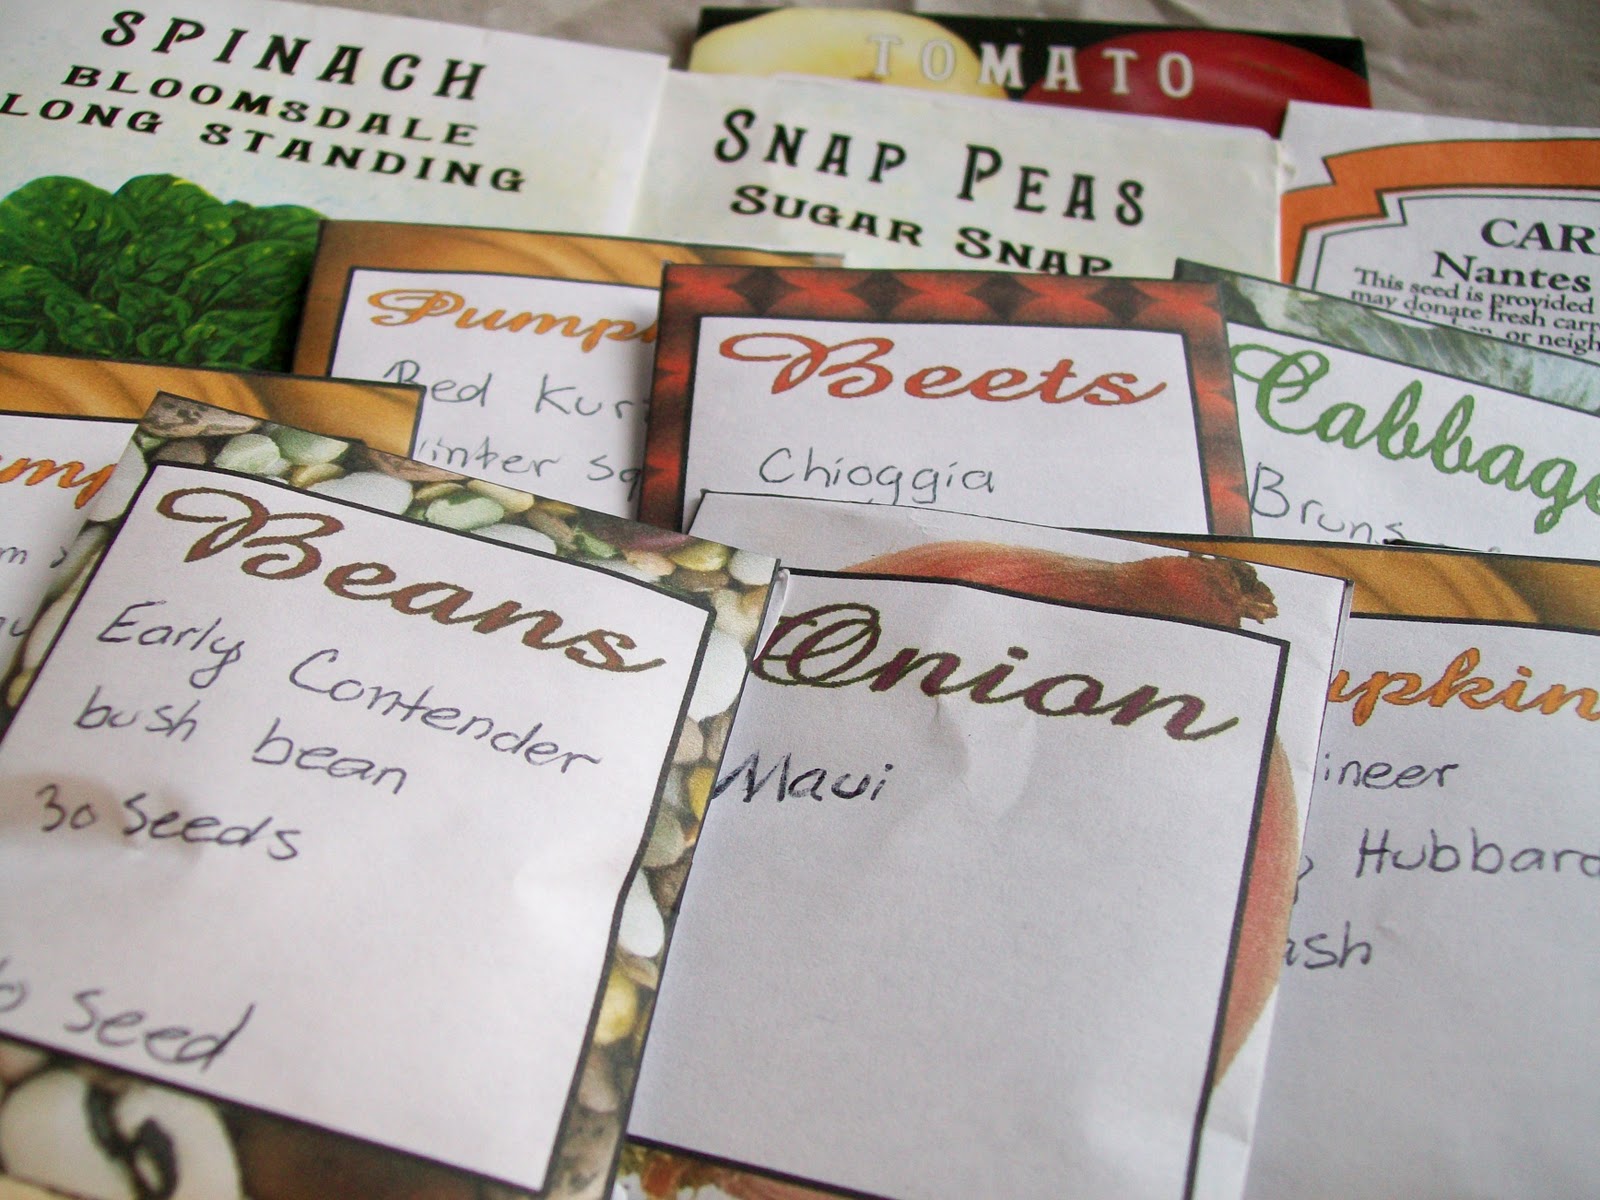 SPINACH
BLOOMSDALE
LONG STANDING
TOMATO
SNAP PEAS
SUGAR SNAP
CAR
Nantes
This seed is provided
may donate fresh carr
or neigh
Pump
Red Kuri
Winter sq
Beets
Chioggia
Cabbage
Bruns
ump
Beans
Early Contender
bush bean
30 seeds
seed
Onion
Maui
mpkin
ineer
Hubbard
ash